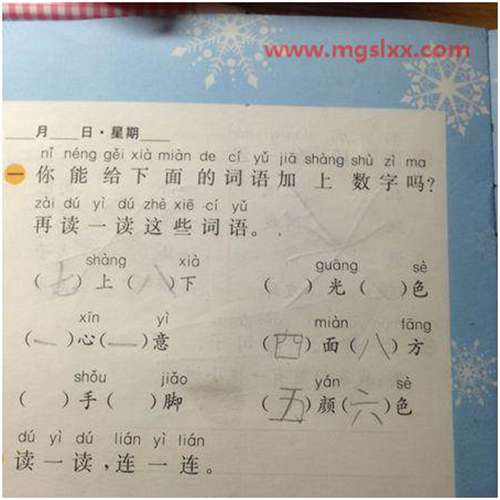 www.mgslxx.com
____月____日·星期____
nǐ néng gěi xià miàn de cí yǔ jiā shàng shù zì ma
一 你能给下面的词语加上数字吗?
zài dú yì dú zhè xiē cí yǔ
再读一读这些词语。
shàng xià guāng sè
(七)上(八)下 ( )光( )色
xīn yì miàn fāng
(一)心(一)意 (四)面(八)方
shǒu jiǎo yán sè
( )手( )脚 (五)颜(六)色
dú yì dú lián yì lián
读一读,连一连。